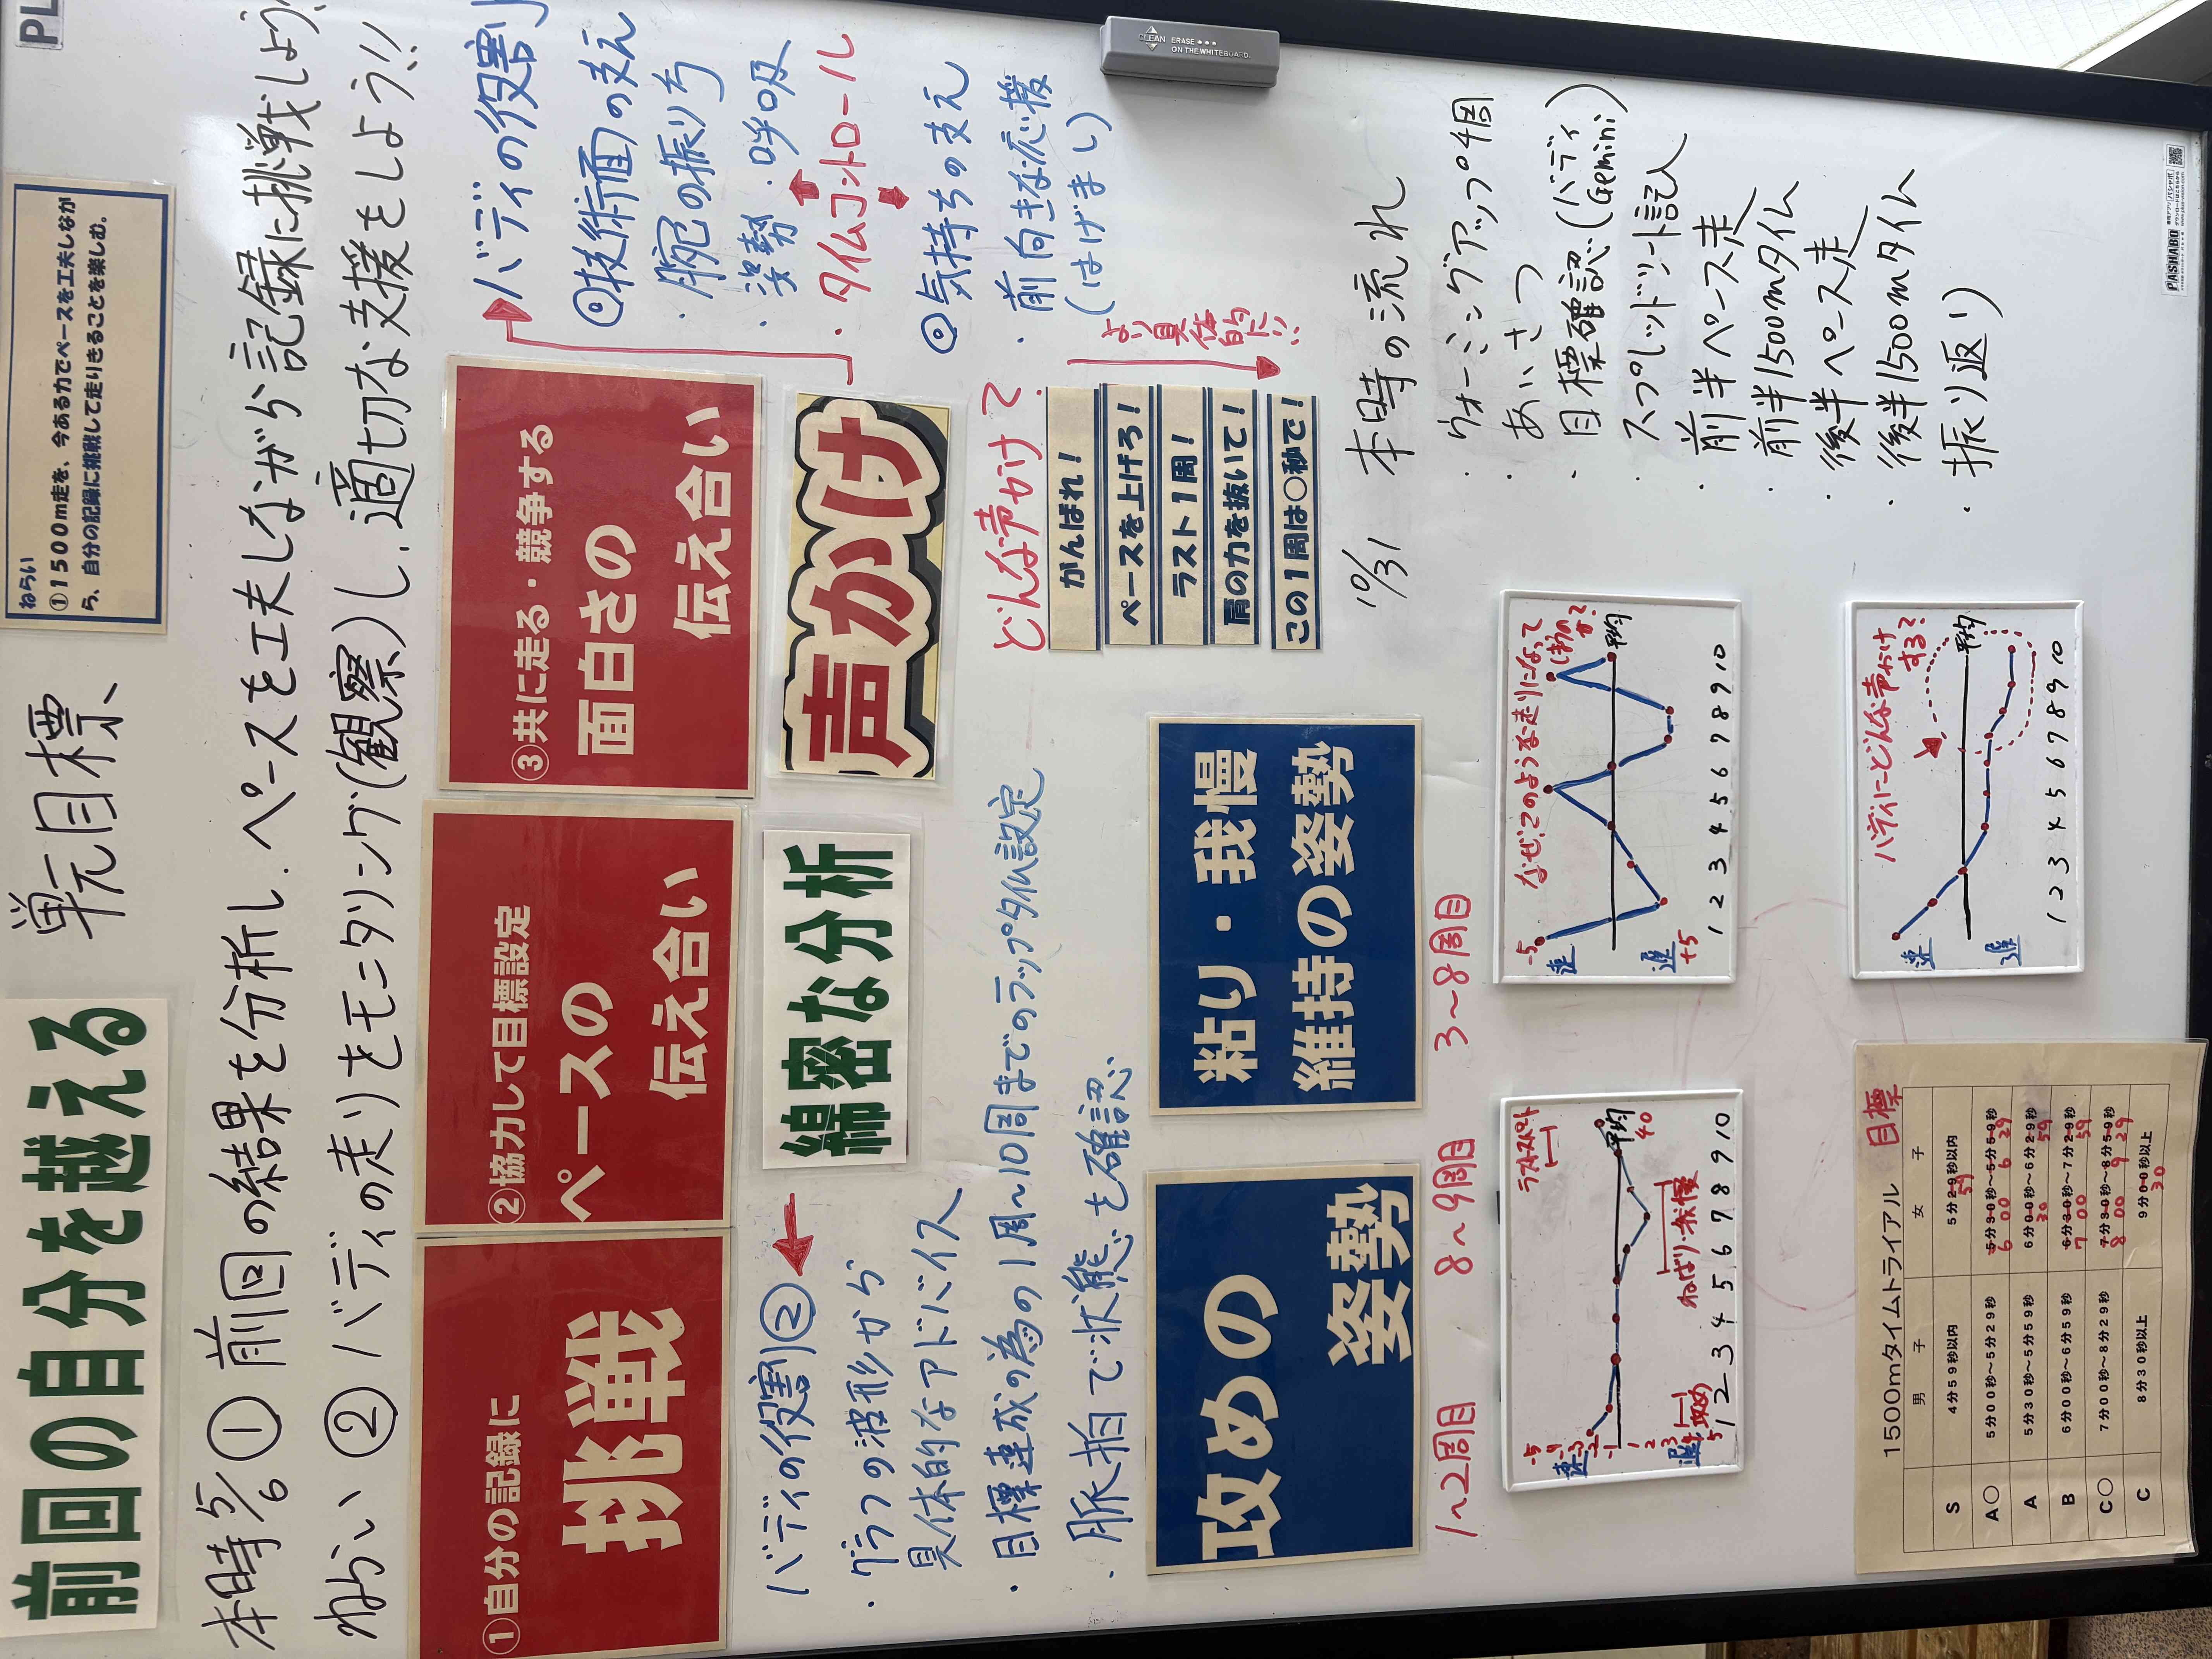 前回の自分を越える
単元目標、
ねらい
①1500m走を、今ある力でペースを工夫しなが
ら、自分の記録に挑戦して走りきることを楽しむ。
本時5/6 ① 前回の結果を分析し、ペースを工夫しながら記録に挑戦しよう
ねらい ② バディの走りをモニタリング(観察)し、適切な支援をしよう!!
①自分の記録に
挑戦
②協力して目標設定
ペースの
伝え合い
③共に走る・競争する
面白さの
伝え合い
綿密な分析
声かけ
バディの役割②
・グラフの波形から
具体的なアドバイス
・目標達成の為の1周〜10周までのラップタイム設定
・脈拍で状態も確認
バディの役割
◎技術面の支え
・腕の振り方
・姿勢・呼吸
・タイムコントロール
◎気持ちの支え
・前向きな応援
(はげまし)
どんな声かけ?
がんばれ!
ペースを上げろ!
ラスト1周!
肩の力を抜いて!
この1周は○秒で!
より具体的に!!
攻めの
姿勢
粘り・我慢
維持の姿勢
1〜2周目
8〜9周目
3〜8周目
10/31 本時の流れ
・ウォーミングアップ4周
・あいさつ
・目標確認(バディ
Gemini)
・スプレッドシート記入
・前半ペース走
・前半1500mタイム
・後半ペース走
・後半1500mタイム
・振り返り
ラストスパート
-5
-4
-3
-2
-1
1
2
3
5
速
遅
平均
40
攻め
ねばり・我慢
1 2 3 4 5 6 7 8 9 10
なぜ?このような走りになって
しまうのか?
-5
速
平均
遅
+5
1 2 3 4 5 6 7 8 9 10
バディにどんな声かけ
する?
速
平均
遅
1 2 3 4 5 6 7 8 9 10
1500mタイムトライアル 目標
男 子 女 子
S 4分59秒以内 5分29秒以内
59
A○ 5分00秒〜5分29秒 5分30秒〜5分59秒
6 00 6 29
A 5分30秒〜5分59秒 6分00秒〜6分29秒
30 59
B 6分00秒〜6分59秒 6分30秒〜7分29秒
7 00 59
C○ 7分00秒〜8分29秒 7分30秒〜8分59秒
8 00 9 29
C 8分30秒以上 9分00秒以上
30
CLEAN ERASE
ON THE WHITEBOARD.
PASHABO
PL